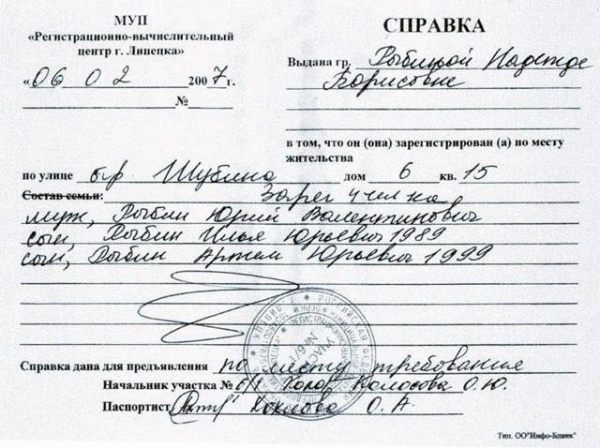 МУП
«Регистрационно-вычислительный
центр г. Липецка»
«06 02 2007 г.
№
СПРАВКА
Выдана гр. Рыбиной Надежде
Борисовне
в том, что он (она) зарегистрирован (а) по месту
жительства
по улице б-р Шубина дом 6 кв. 15
Состав семьи: Зарег
муж, Рыбин Юрий Валентинович
сын, Рыбин Илья Юрьевич 1989
сын, Рыбин Артем Юрьевич 1999
Справка дана для предъявления по месту требования
Начальник участка № 6/1 Колосова О.Ю.
Паспортист О. А.
Тип. ОО"Инфо-Бланк"